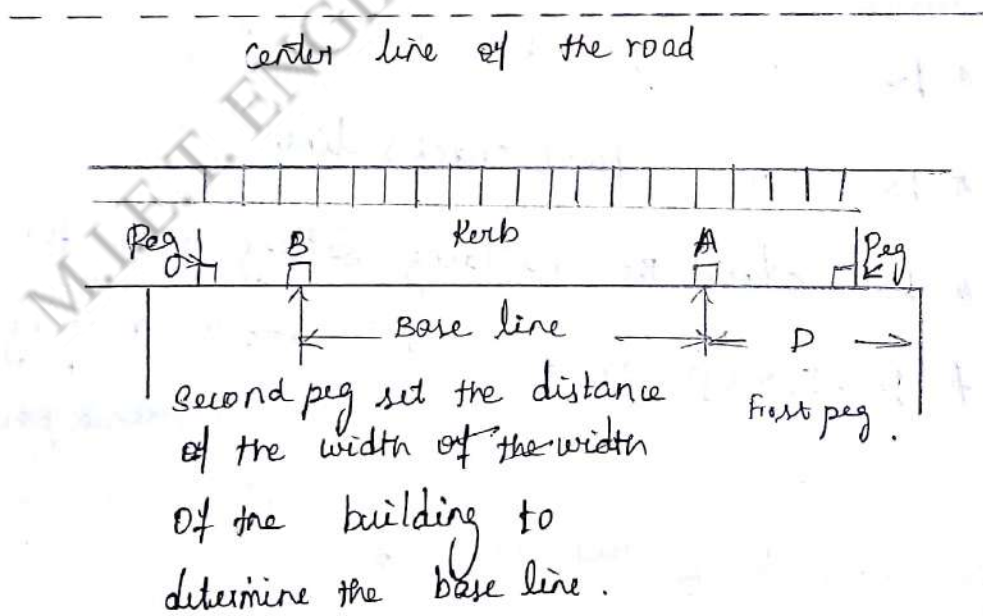 center line of the road
Kerb
Peg B A Peg
Base line D
Second peg set the distance
of the width of the width
of the building to
determine the base line.
First peg.
M.I.E.T. ENGI